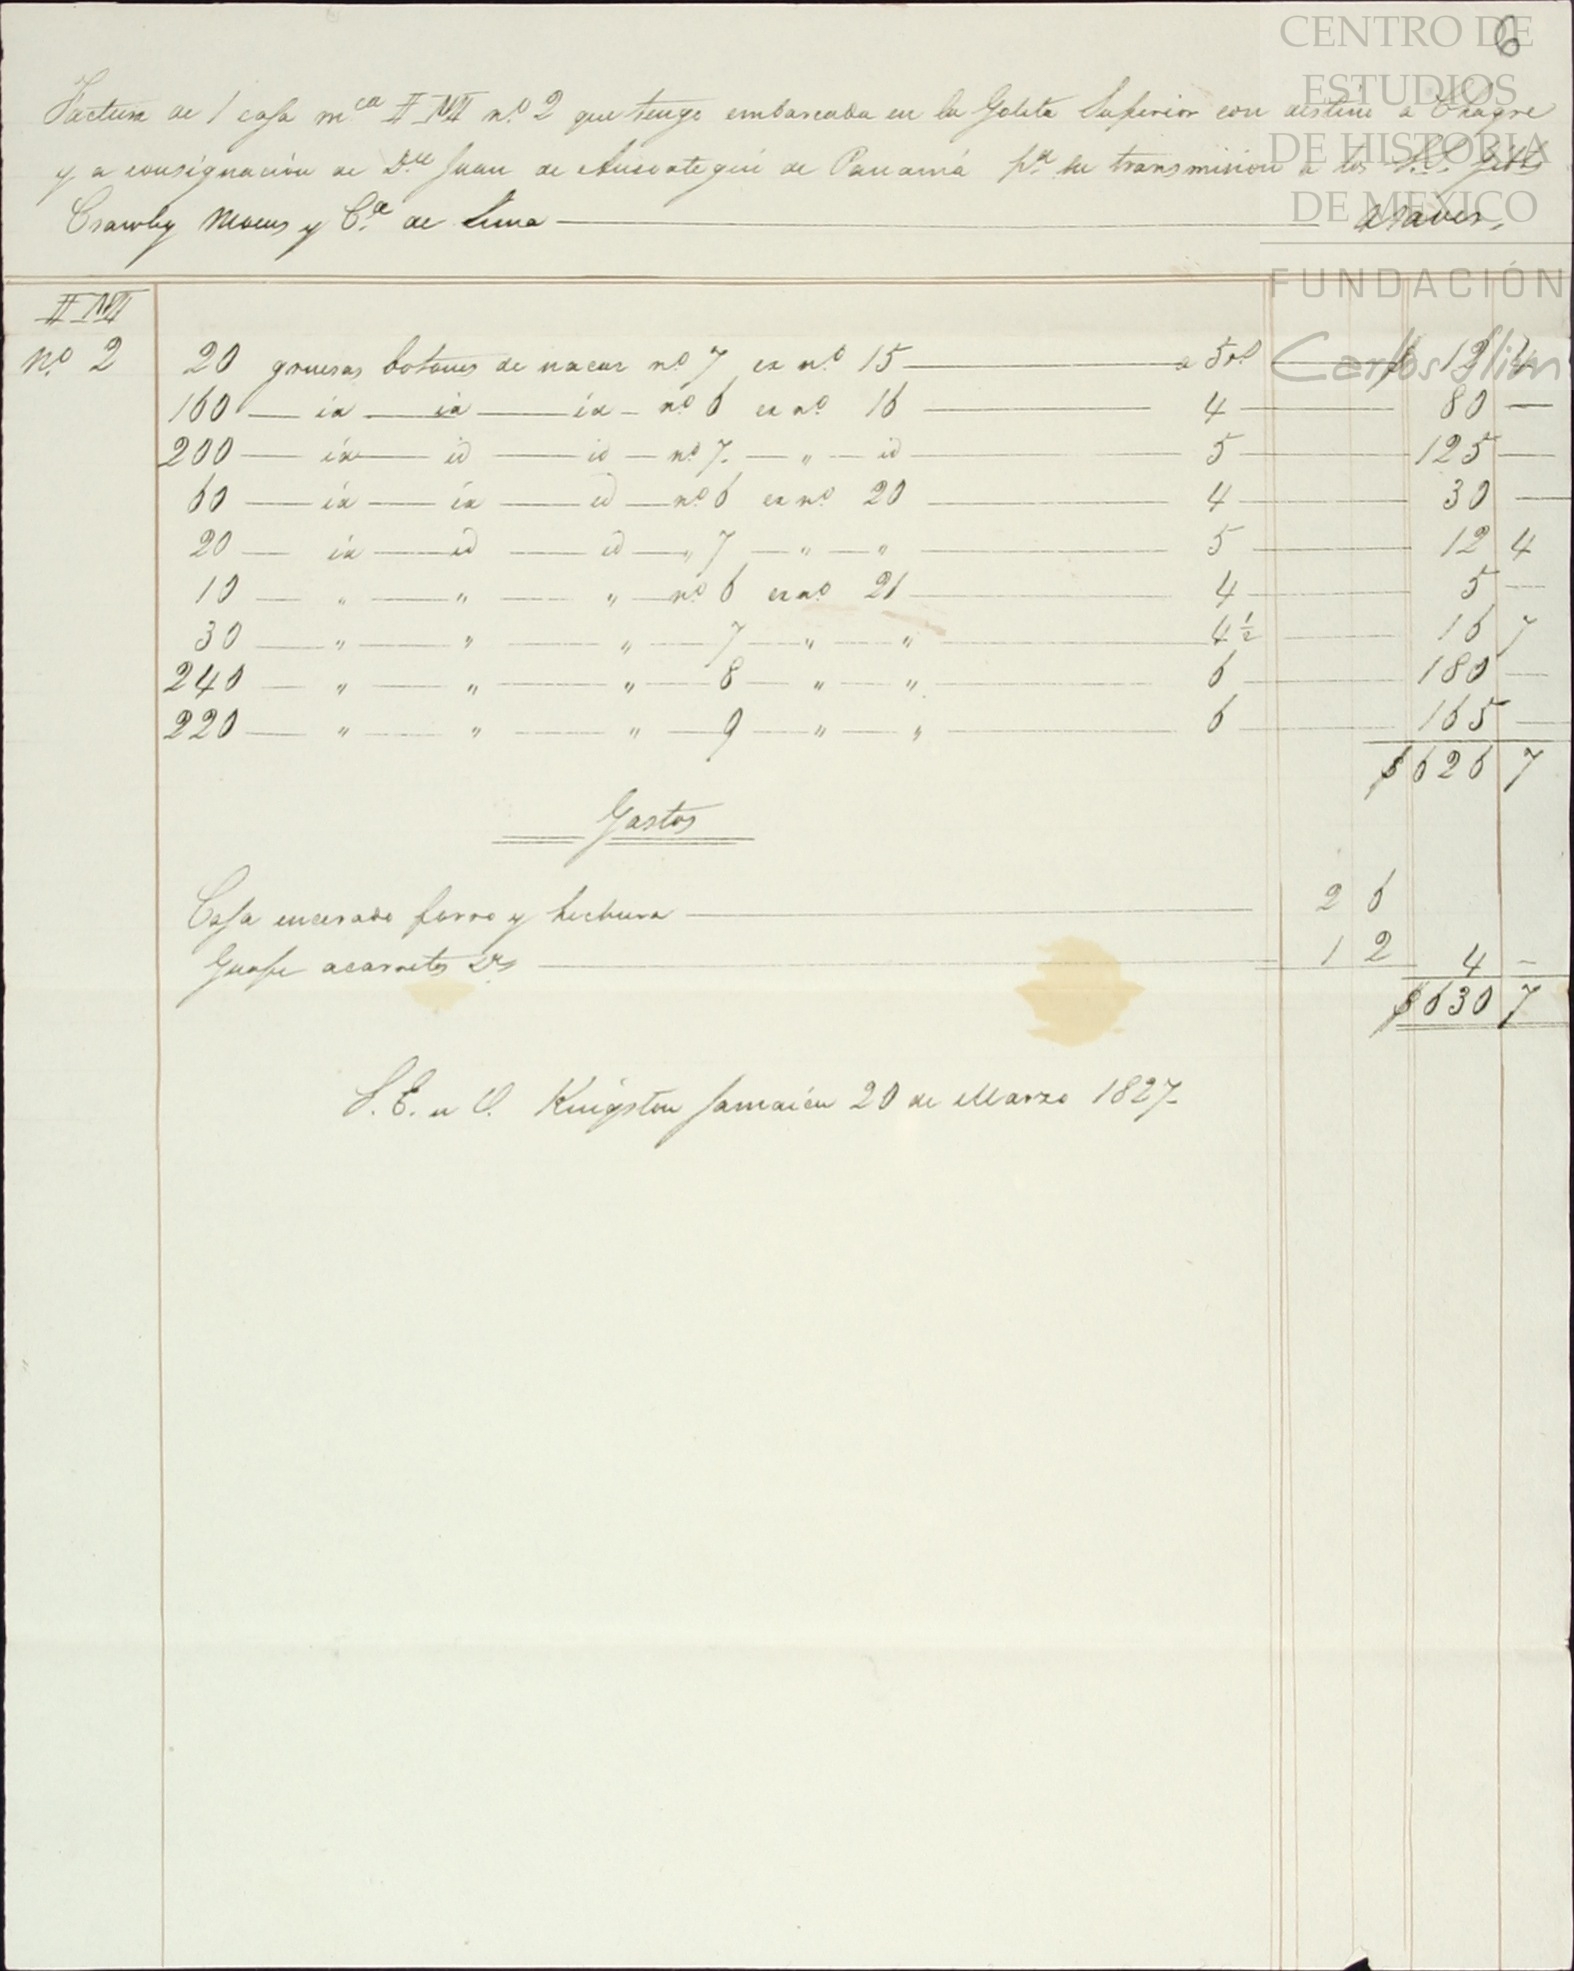 6
Factura de 1 caja m.ca nº 2 que tengo embarcada en la Goleta Superior con destino a Chagre
y a consignación de Dn Juan de Ansoategui de Panamá pa su transmision a los S.S. Gibbs
Crawley Moens y Ca de Lima — a saver,
nº 2 20 gruesas botones de nacar nº 7 ca nº 15 — a 5 rs — $ 12 4
160 — id — id — id — nº 6 ca nº 16 — 4 — 80 —
200 — id — id — id — nº 7 — " — id — 5 — 125 —
60 — id — id — id — nº 6 ca nº 20 — 4 — 30 —
20 — id — id — id — " 7 — " — " — 5 — 12 4
10 — " — " — " — nº 6 ca nº 21 — 4 — 5 —
30 — " — " — " — 7 — " — " — 4 ½ — 16 7
240 — " — " — " — 8 — " — " — 6 — 180 —
220 — " — " — " — 9 — " — " — 6 — 165 —
$ 626 7
Gastos
Caja encerado forro y hechura — 2 6
Guafe acarretos — 1 2 4 —
$ 630 7
S. E. u O. Kingston Jamaica 20 de Marzo 1827
CENTRO DE
ESTUDIOS
DE HISTORIA
DE MEXICO
FUNDACIÓN
Carlos Slim